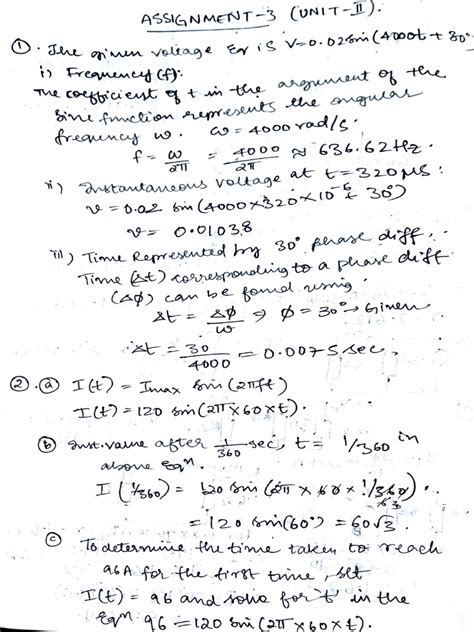 ASSIGNMENT-3 (UNIT-II).
① . The given voltage Eqr is V=0.02sin(4000t + 30°
i) Frequency (f):
The coefficient of t in the argument of the
Sine function represents the angular
frequency ω. ω = 4000 rad/s.
f = ω/2π = 4000/2π ≈ 636.62Hz.
ii) Instantaneous voltage at t=320μs :
v = 0.02 sin (4000×320×10^-6 + 30°)
v = 0.01038
iii) Time Represented by 30° phase diff.
Time (Δt) corresponding to a phase diff
(Δφ) can be found using.
Δt = Δφ/ω ⇒ φ = 30° → Given
Δt = 30/4000 = 0.0075 sec.
② . ⓐ I(t) = Imax sin(2πft)
I(t) = 120 sin(2π×60×t).
ⓑ Inst. value after 1/360 sec, t = 1/360 in
above Eqn.
I (1/360) = 120 sin (2π × 60 × 1/360) .
6 3
= 120 sin(60°) = 60√3 .
ⓒ To determine the time taken to reach
96A for the first time, set
I(t) = 96 and solve for 't' in the
Eqn 96 = 120 sin (2π×60×t).